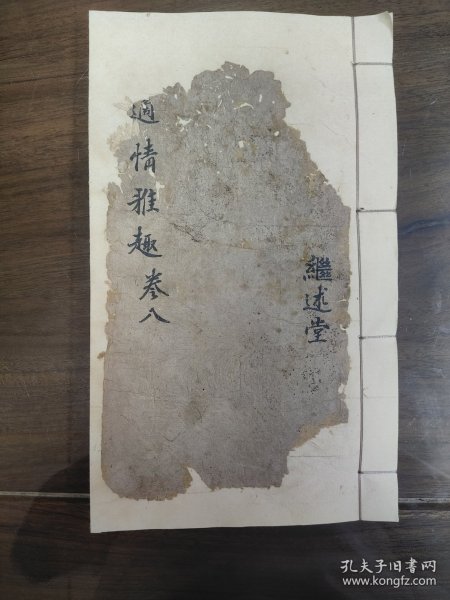 適情雅趣卷八
繼述堂
孔夫子旧书网
www.kongfz.com